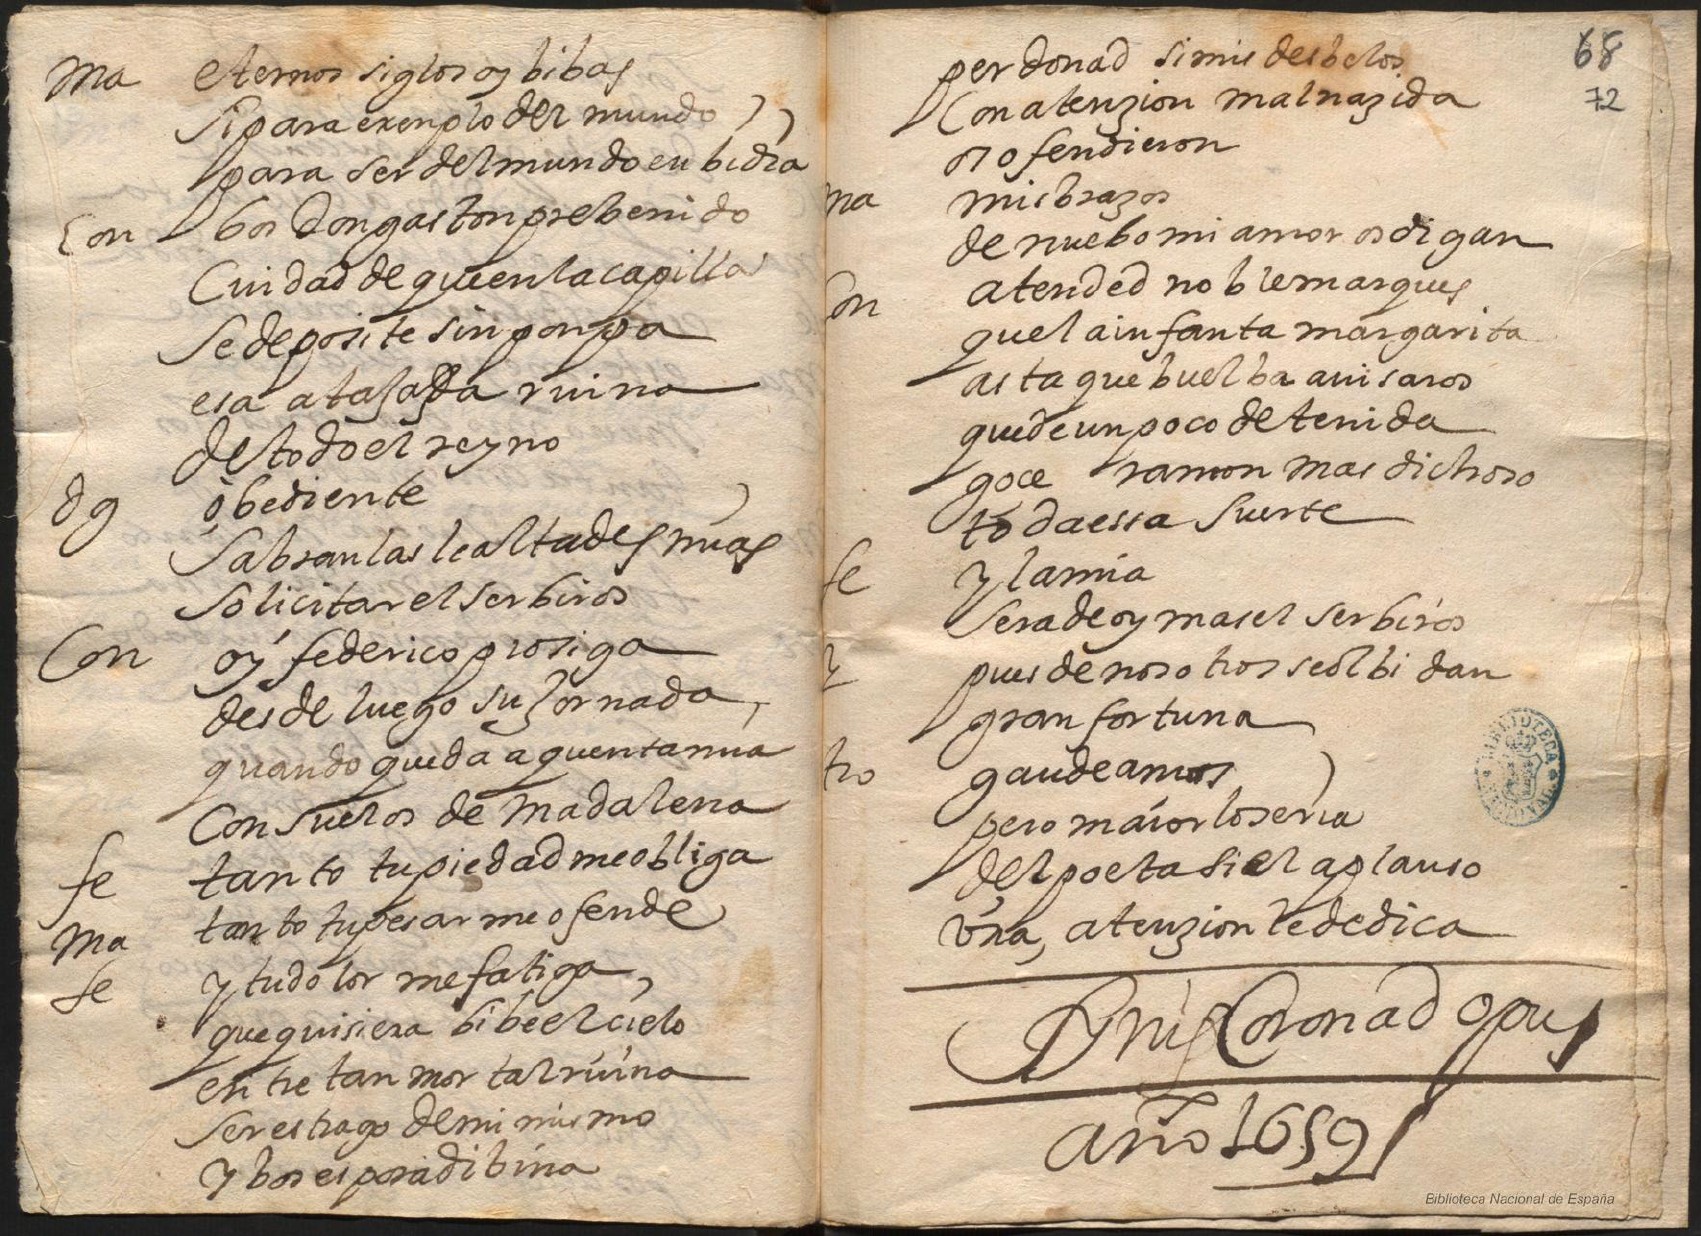 ma eternos siglos oy bibas
si para exenplo del mundo
para ser del mundo enbidia
Con bos don gaston prebenido
Cuidad de que en la capilla
se deposite sin ponpa
esa
de todo el reyno
dg obediente
sabran las lealtades mias
solicitar el serbiros
Con oy federico prosiga
desde luego su jornada
quando queda a quenta mia
Consuelos de madalena
fe tanto tu piedad me obliga
ma tanto tu pesar me ofende
fe y tu dolor me fatiga
que quisiera bibe el cielo
entre tan mortal ruina
ser estrago de mi mismo
y bos esposa dibina
68
72
perdonad si mis desbelos
Con atenzion mal nazida
os ofendieron
ma mis brazos
de nuebo mi amor os digan
Con atended noble marques
quel a infanta margarita
asta que buelba auisaros
quede un poco detenida
goce ramon mas dichoso
toda essa suerte
fe y la mia
sera de oy mas el serbiros
y pues de nosotros se olbidan
gran fortuna
tro gaudeamos
pero maior lo seria
del poeta si el aplauso
vna atenzion le dedica
Finis Coronad opus
año 1659
BIBLIOTECA NACIONAL
Biblioteca Nacional de España